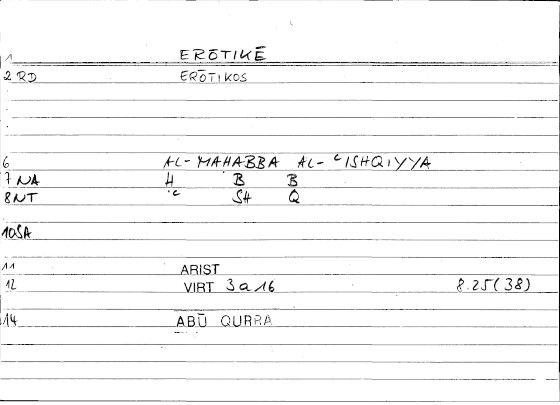 1 ERŌTIKĒ
2 RD ERŌTIKOS
6 AL-MAHABBA AL-ʿISHQIYYA
7 NA H B B
8 NT ʿ SH Q
10 SA
11 ARIST
12 VIRT 3a16 8.25(38)
14 ABŪ QURRA